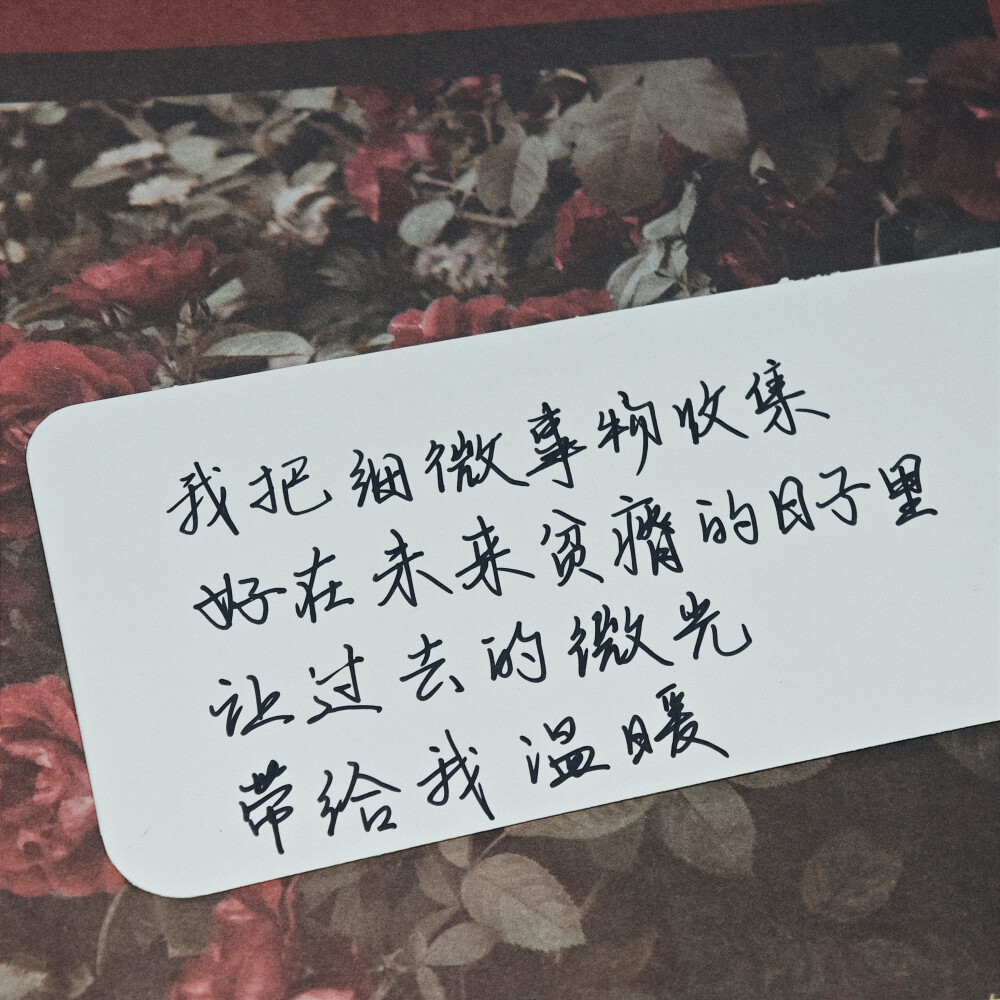 我把细微事物收集
好在未来贫瘠的日子里
让过去的微光
带给我温暖